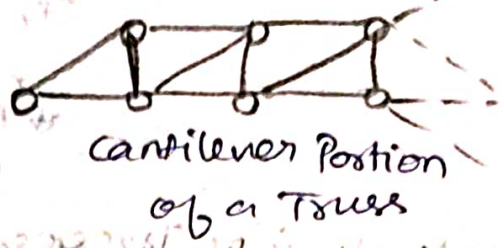 Cantilever Portion
of a Truss